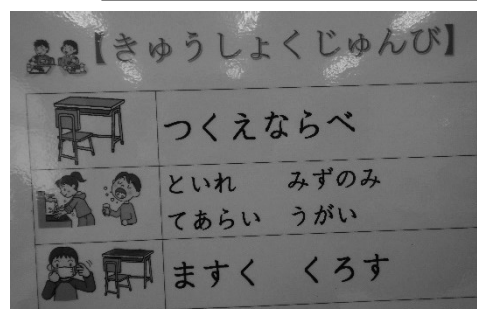 【きゅうしょくじゅんび】
つくえならべ
といれ　　みずのみ
てあらい　うがい
ますく　くろす